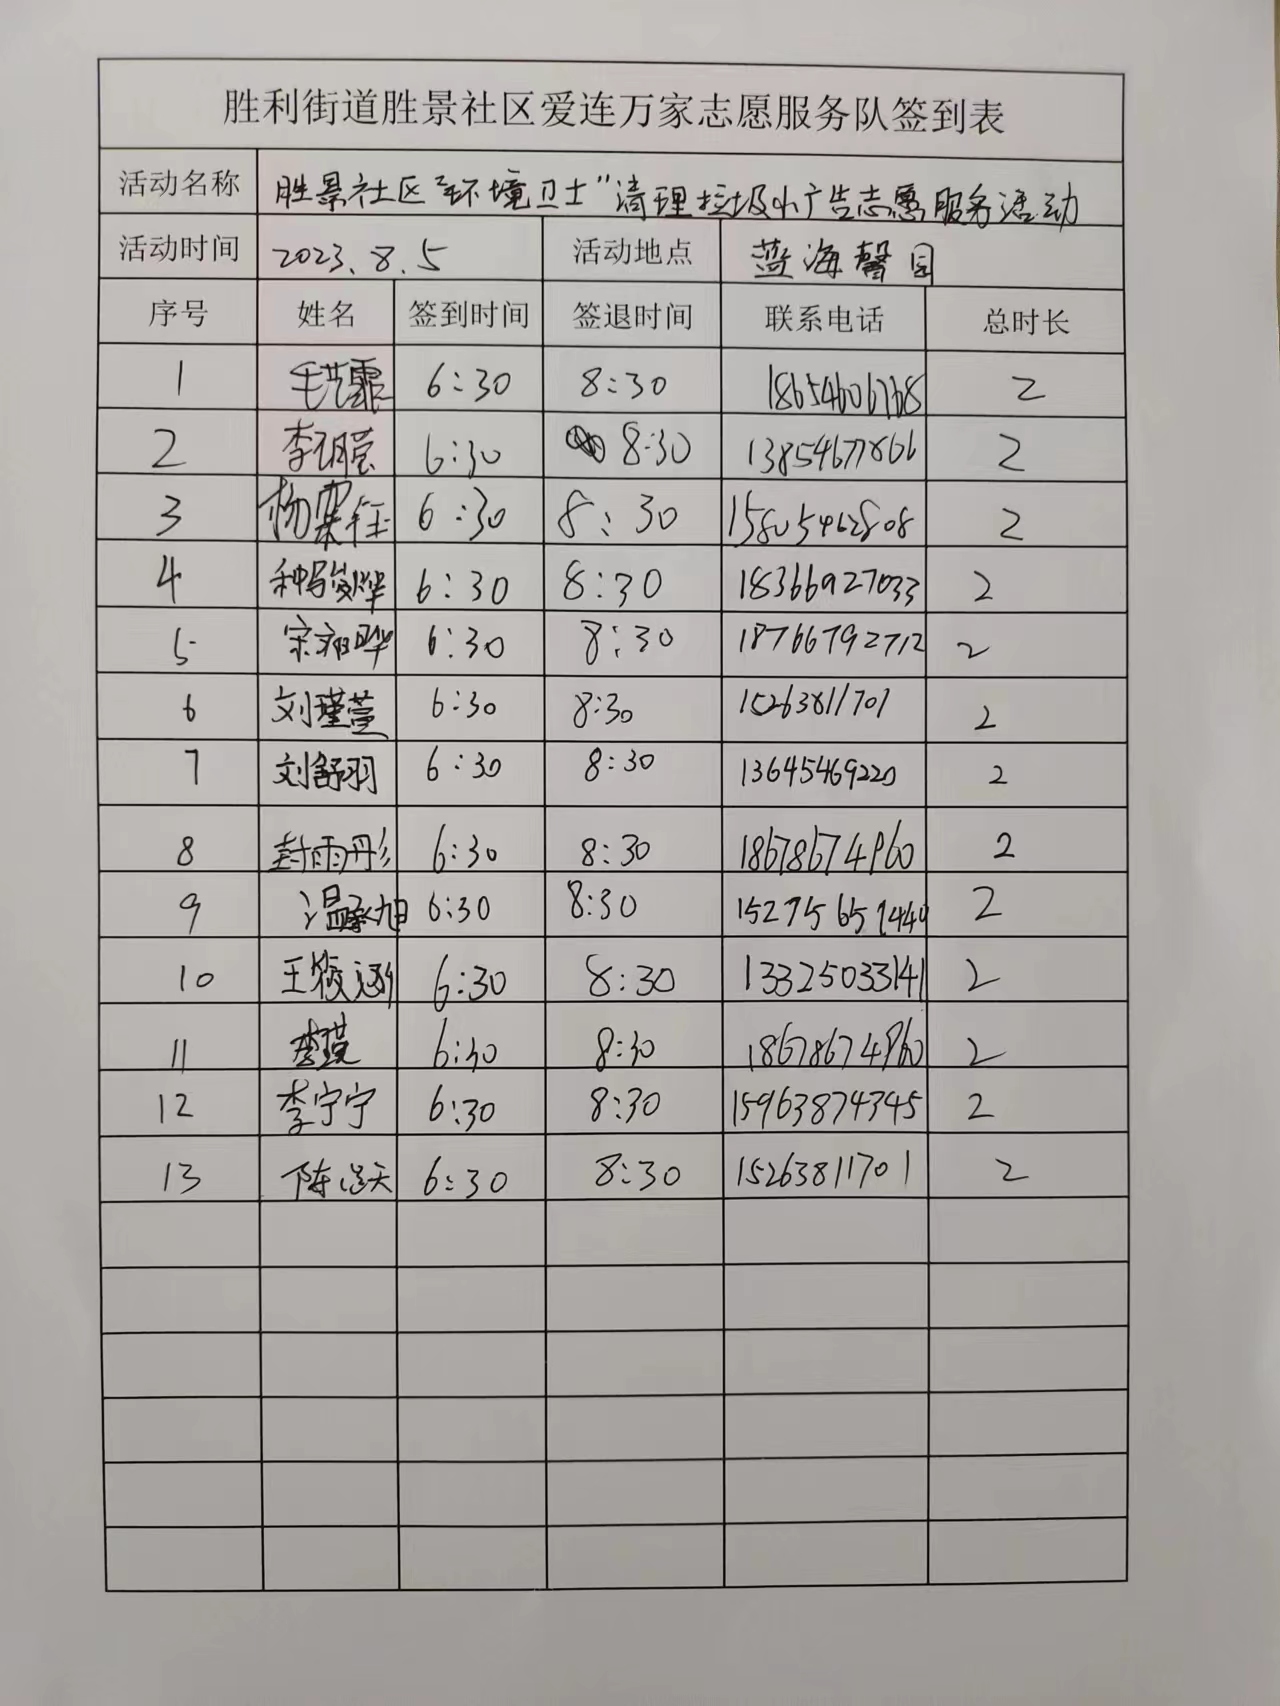 胜利街道胜景社区爱连万家志愿服务队签到表
活动名称 胜景社区“环境卫士”清理垃圾小广告志愿服务活动
活动时间 2023.8.5 活动地点 蓝海馨园
序号 姓名 签到时间 签退时间 联系电话 总时长
1 毛艺霏 6:30 8:30 18654606768 2
2 李明莹 6:30 8:30 13854677866 2
3 杨 6:30 8:30 15805462808 2
4 种 6:30 8:30 18366927033 2
5 宋 6:30 8:30 18766792712 2
6 刘瑾萱 6:30 8:30 15263811701 2
7 刘舒羽 6:30 8:30 13645469220 2
8 封雨彤 6:30 8:30 18678674960 2
9 温承旭 6:30 8:30 2
10 王筱涵 6:30 8:30 13325033141 2
11 李 6:30 8:30 18678674960 2
12 李宁宁 6:30 8:30 15963874345 2
13 陈 6:30 8:30 15263811701 2